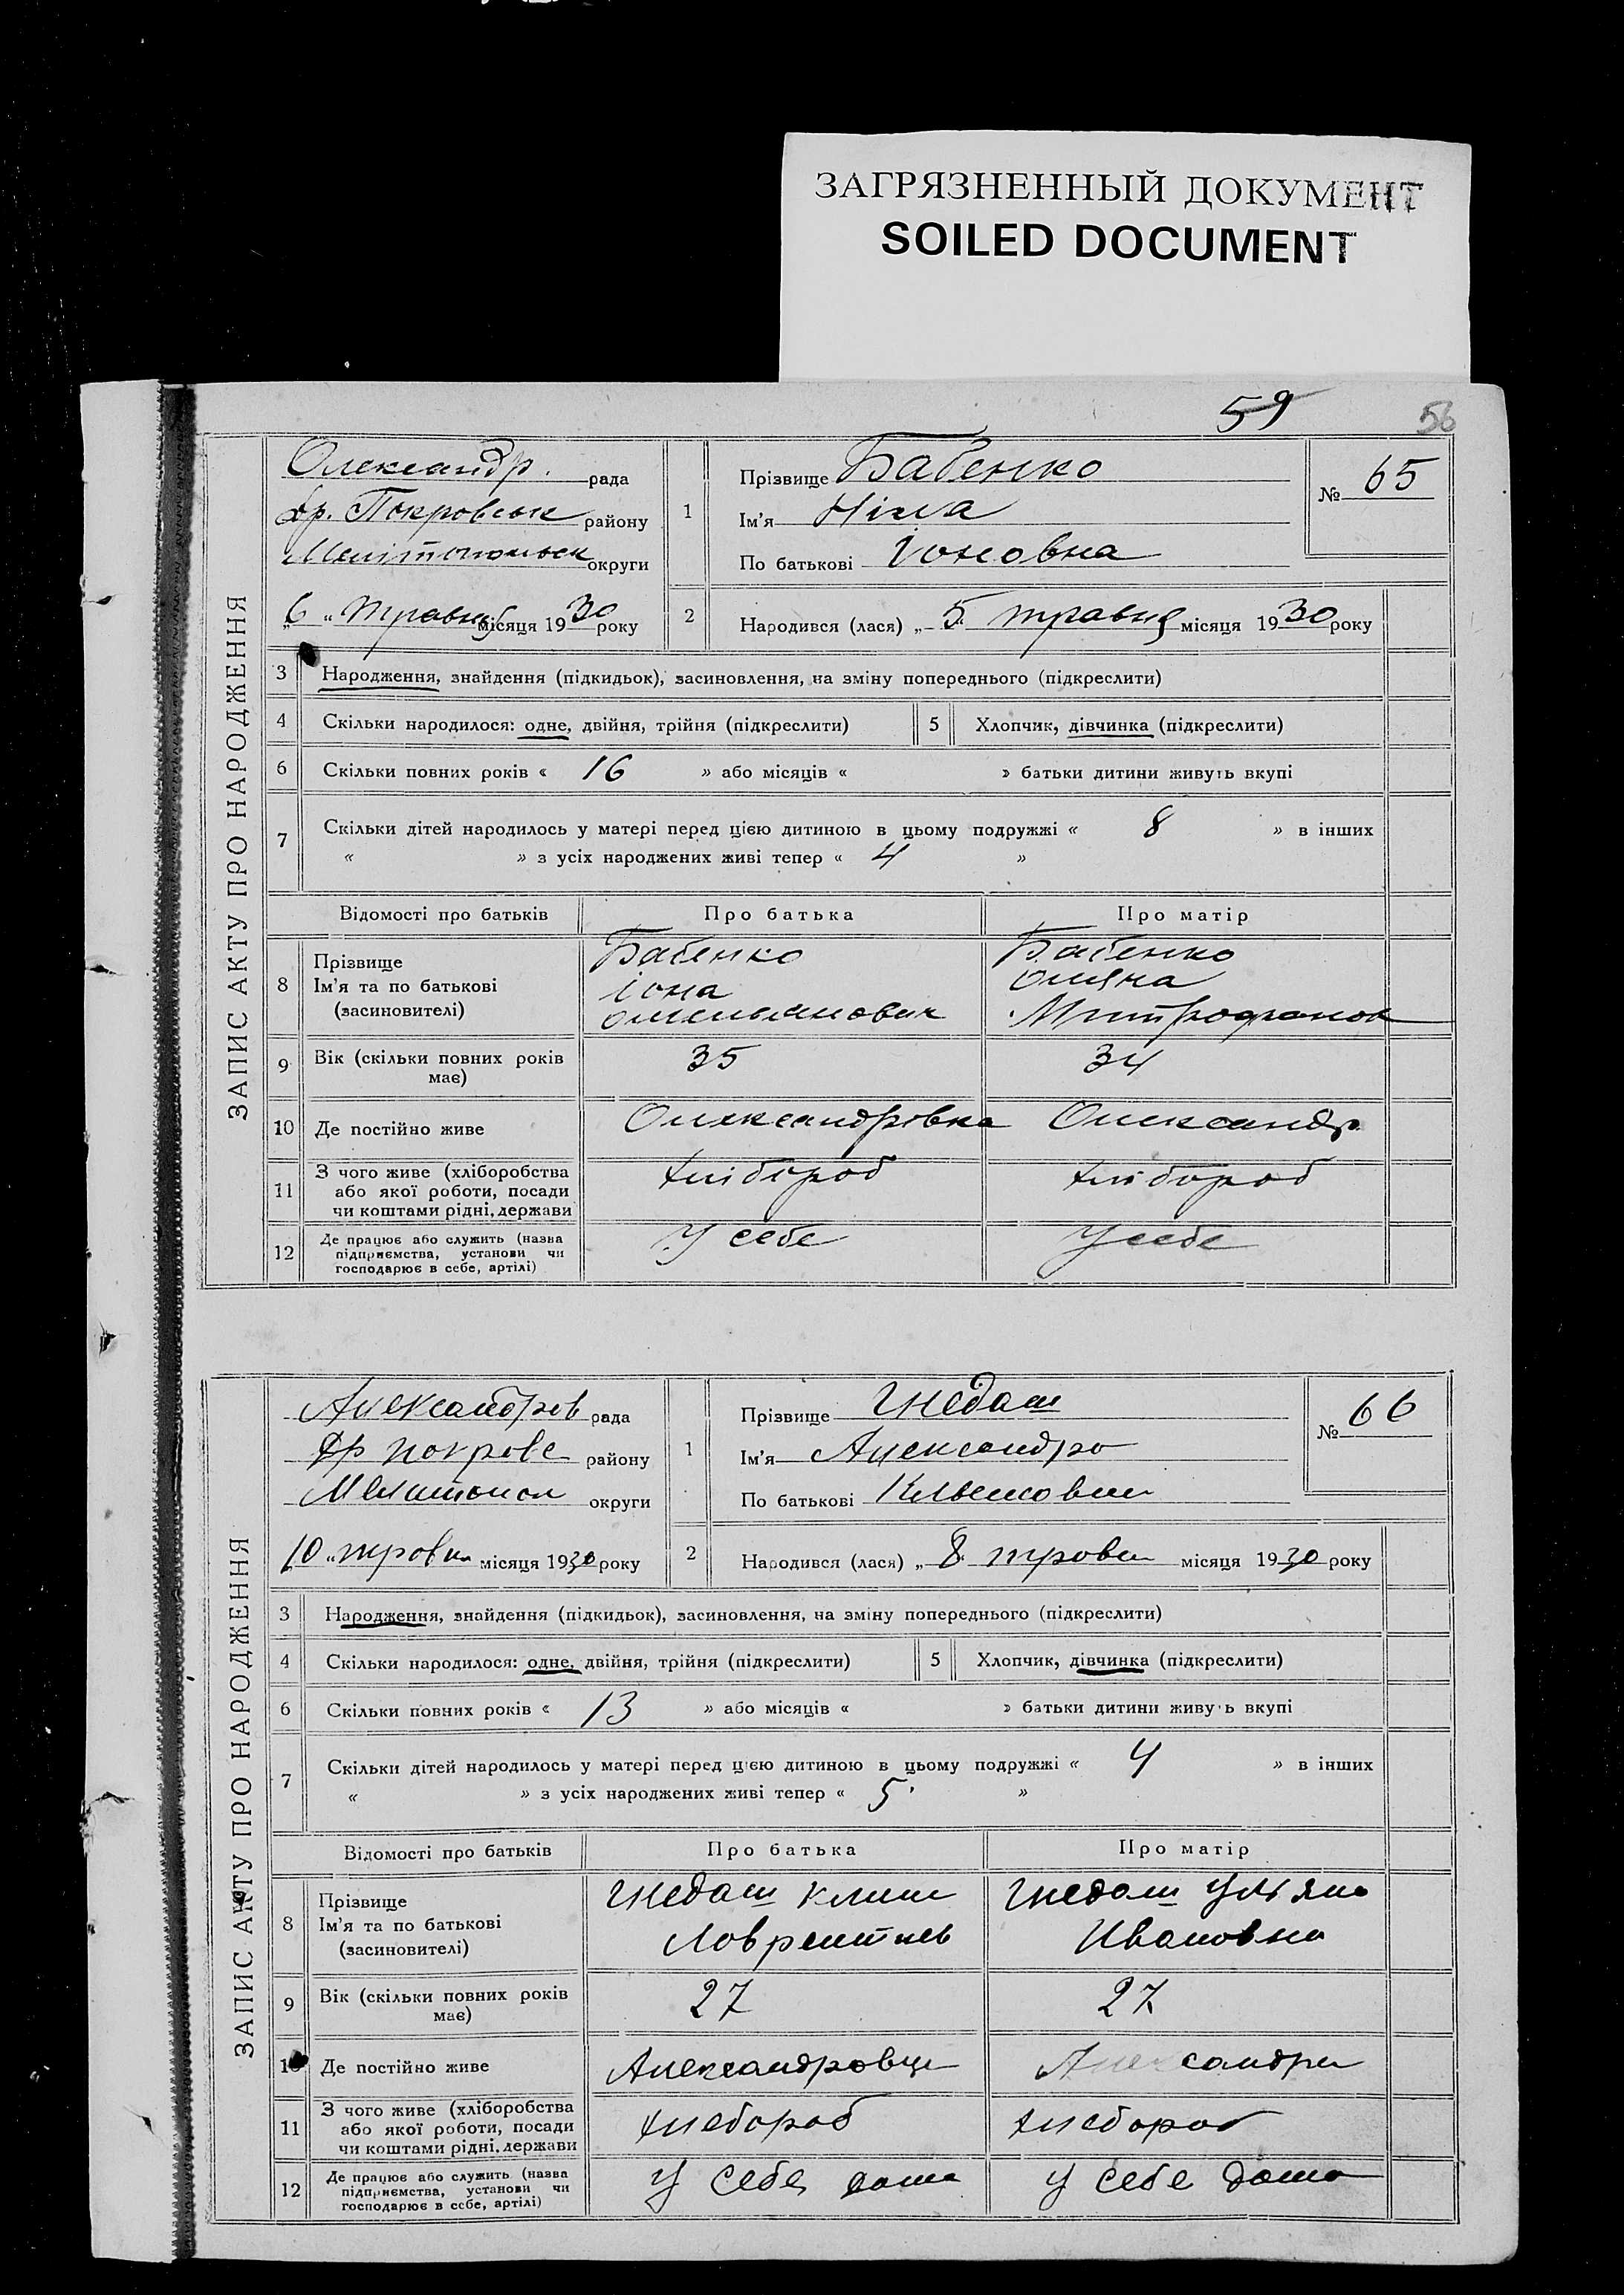 ЗАГРЯЗНЕННЫЙ ДОКУМЕНТ
SOILED DOCUMENT
59 56
ЗАПИС АКТУ ПРО НАРОДЖЕННЯ
Олександр. рада
Др. Покровськ району
Мелітопольськ округи
„6 “ травня місяця 1930 року
1 Прізвище Бабенко
Ім'я Ніна
По батькові Іоновна
№ 65
2 Народився (лася) „5“ травня місяця 1930 року
3 Народження, знайдення (підкидьок), засиновлення, на зміну попереднього (підкреслити)
4 Скільки народилося: одне, двійня, трійня (підкреслити) 5 Хлопчик, дівчинка (підкреслити)
6 Скільки повних років « 16 » або місяців « » батьки дитини живуть вкупі
7 Скільки дітей народилось у матері перед цією дитиною в цьому подружжі « 8 » в інших
« » з усіх народжених живі тепер « 4 »
Відомості про батьків Про батька Про матір
8 Прізвище
Ім'я та по батькові
(засиновителі)
Бабенко
Іона
Бабенко
9 Вік (скільки повних років має) 35 34
10 Де постійно живе Олександрівка Олександр
11 З чого живе (хліборобства
або якої роботи, посади
чи коштами рідні, держави
хлібороб хлібороб
12 Де працює або служить (назва
підприємства, установи чи
господарює в себе, артілі)
У себе У себе
ЗАПИС АКТУ ПРО НАРОДЖЕННЯ
Александров рада
Др Покровс району
Мелитопол округи
„10 “ місяця 1930 року
1 Прізвище Гнедаш
Ім'я Александра
По батькові
№ 66
2 Народився (лася) „8“ місяця 1930 року
3 Народження, знайдення (підкидьок), засиновлення, на зміну попереднього (підкреслити)
4 Скільки народилося: одне, двійня, трійня (підкреслити) 5 Хлопчик, дівчинка (підкреслити)
6 Скільки повних років « 13 » або місяців « » батьки дитини живуть вкупі
7 Скільки дітей народилось у матері перед цією дитиною в цьому подружжі « 4 » в інших
« » з усіх народжених живі тепер « 5 »
Відомості про батьків Про батька Про матір
8 Прізвище
Ім'я та по батькові
(засиновителі)
Гнедаш Клим
Лаврентиев
Гнедаш Ульяна
Ивановна
9 Вік (скільки повних років має) 27 27
10 Де постійно живе Александровци Александри
11 З чого живе (хліборобства
або якої роботи, посади
чи коштами рідні, держави
хлебороб хлебороб
12 Де працює або служить (назва
підприємства, установи чи
господарює в себе, артілі)
У себе дома У себе дома